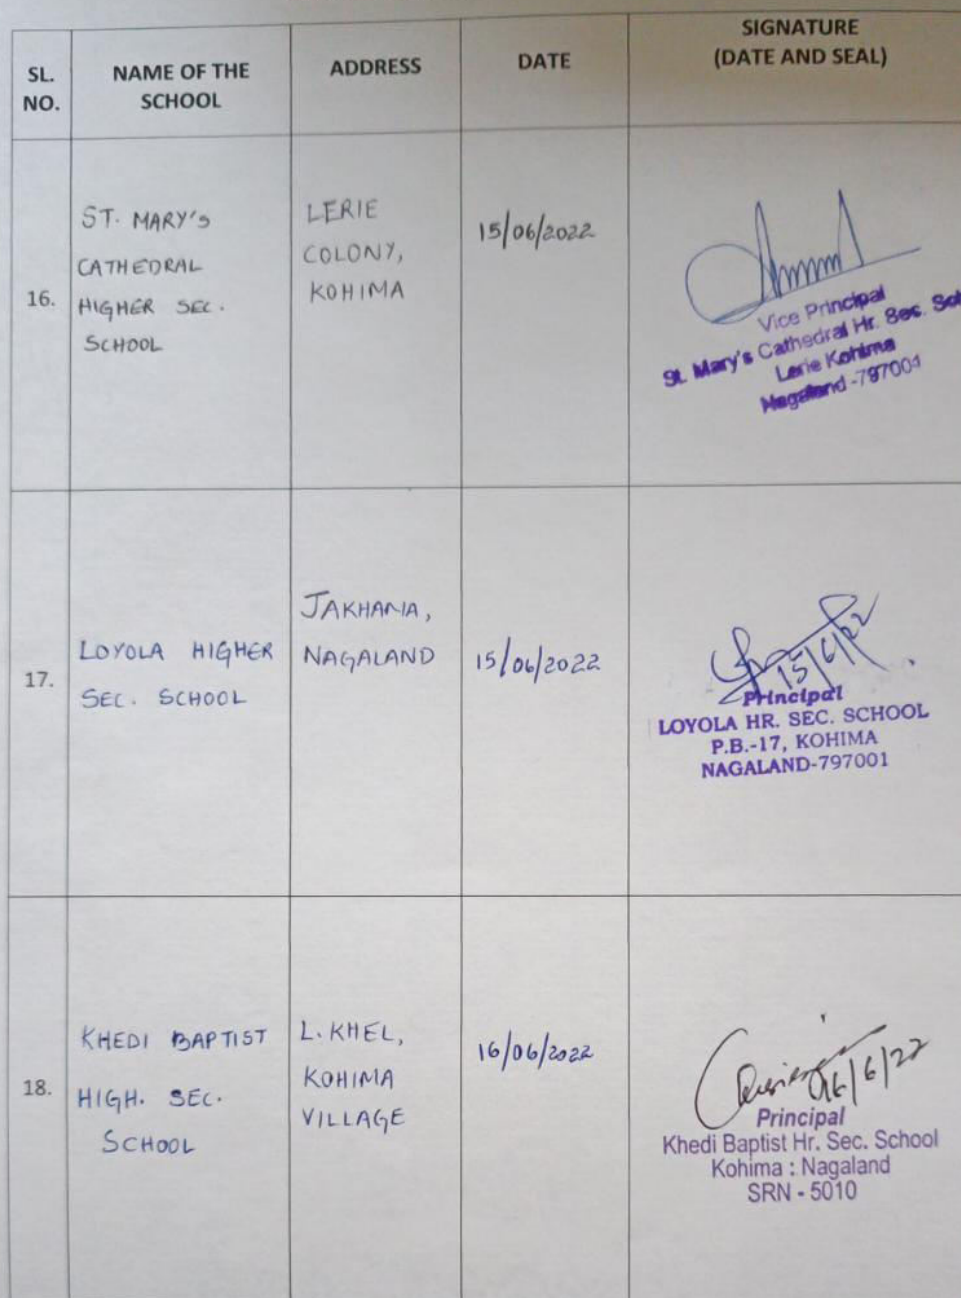 SL. NO.
NAME OF THE SCHOOL
ADDRESS
DATE
SIGNATURE
(DATE AND SEAL)
16.
ST. MARY'S
CATHEDRAL
HIGHER SEC.
SCHOOL
LERIE
COLONY,
KOHIMA
15/06/2022
Vice Principal
St. Mary's Cathedral Hr. Sec. Sch
Lerie Kohima
Nagaland -797001
17.
LOYOLA HIGHER
SEC. SCHOOL
JAKHAMA,
NAGALAND
15/06/2022
15/6/22
Principal
LOYOLA HR. SEC. SCHOOL
P.B.-17, KOHIMA
NAGALAND-797001
18.
KHEDI BAPTIST
HIGH. SEC.
SCHOOL
L. KHEL,
KOHIMA
VILLAGE
16/06/2022
16/6/22
Principal
Khedi Baptist Hr. Sec. School
Kohima : Nagaland
SRN - 5010